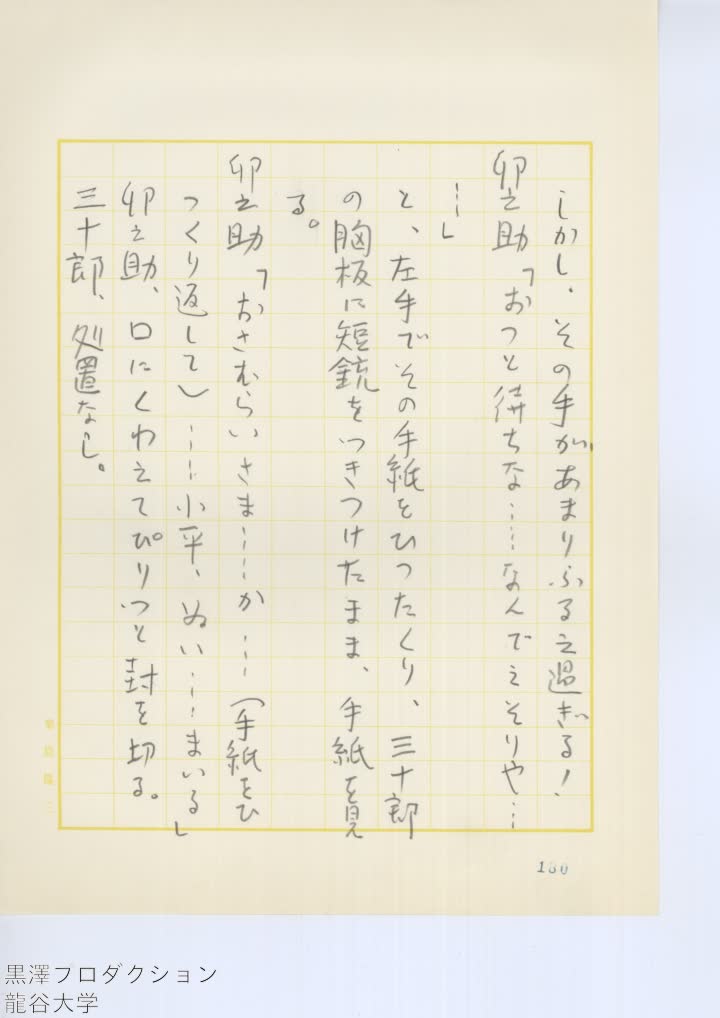 しかし、その手があまりふるえ過ぎる!
卯之助「おつと待ちな……なんでえそりや…
…」
と、左手でその手紙をひつたくり、三十郎
の胸板に短銃をつきつけたまま、手紙を見
る。
卯之助「おさむらいさま……か……(手紙をひ
つくり返して)……小平、ぬい……まいる」
卯之助、口にくわえてぴりつと封を切る。
三十郎、処置なし。
180
黒澤プロダクション
龍谷大学